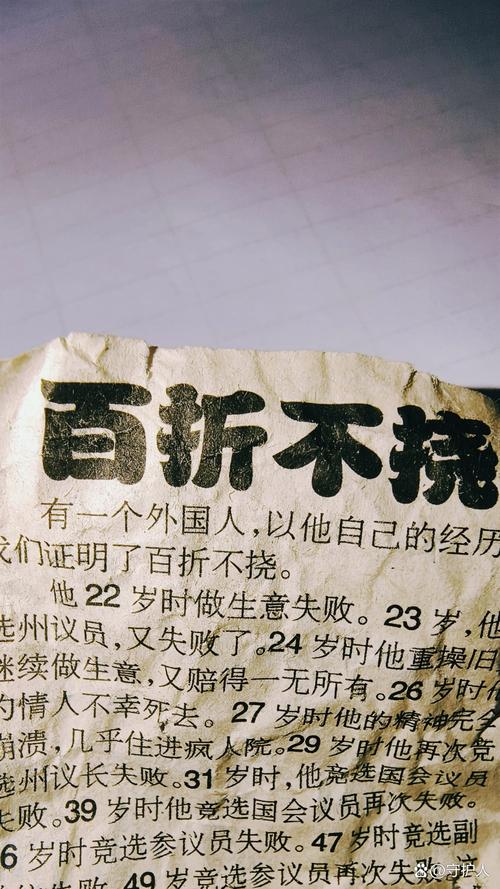 百折不挠
有一个外国人，以他自己的经历
我们证明了百折不挠。
他22岁时做生意失败。23岁，他
选州议员，又失败了。24岁时他重操旧
继续做生意，又赔得一无所有。26岁时他
的情人不幸死去。27岁时他的精神完全
崩溃，几乎住进疯人院。29岁时他再次竞
选州议长失败。31岁时，他竞选国会议员
失败。39岁时他竞选国会议员再次失败。
6岁时竞选参议员失败。47岁时竞选副
失败。49岁时竞选参议员再次失
@守护人